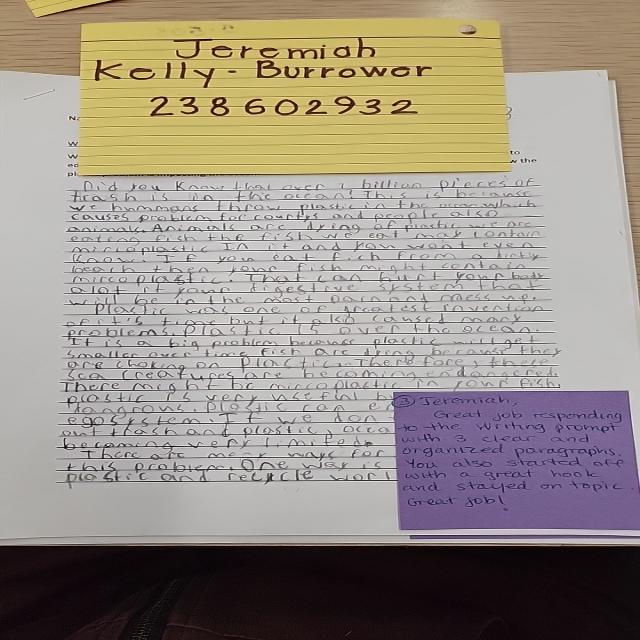 Jeremiah
Kelly - Burrower
238602932
Na
W
W to
ed w the
Did you know that over 1 billion pieces of
trash is in the ocean! This is because
we hummans throw plastic in the ocean. which
causes problem for countys and people also
animals. Animals are dying of plastic we are
eating fish the fish we eat may contain
mircoplastic in it and you wont even
know. If you eat fich from a dirty
beach then your fish might contain
mircoplastic. That can hurt your body
alot it your digestive system that
will be in the most pain and mess up.
Plastic was one of greatest invention
of it's time but it also caused many
problems. plastic is over the ocean.
It is a big problem because plastic will get
smaller over time fish are dying because they
are choking on plastic. Therefore, these
sea creatures are becoming edangered.
There might be mircoplastic in your fish.
plastic is very useful b
dangrous. plastic can en
egosystem. If we don
out trash and plastic, ocea
becoming very limited.
There are many ways for
this problem. One way is
plastic and recycle worl
③ Jeremiah,
Great job responding
to the writing prompt
with 3 clear and
organized paragraphs.
You also started off
with a great hook
and stayed on topic.
Great job!